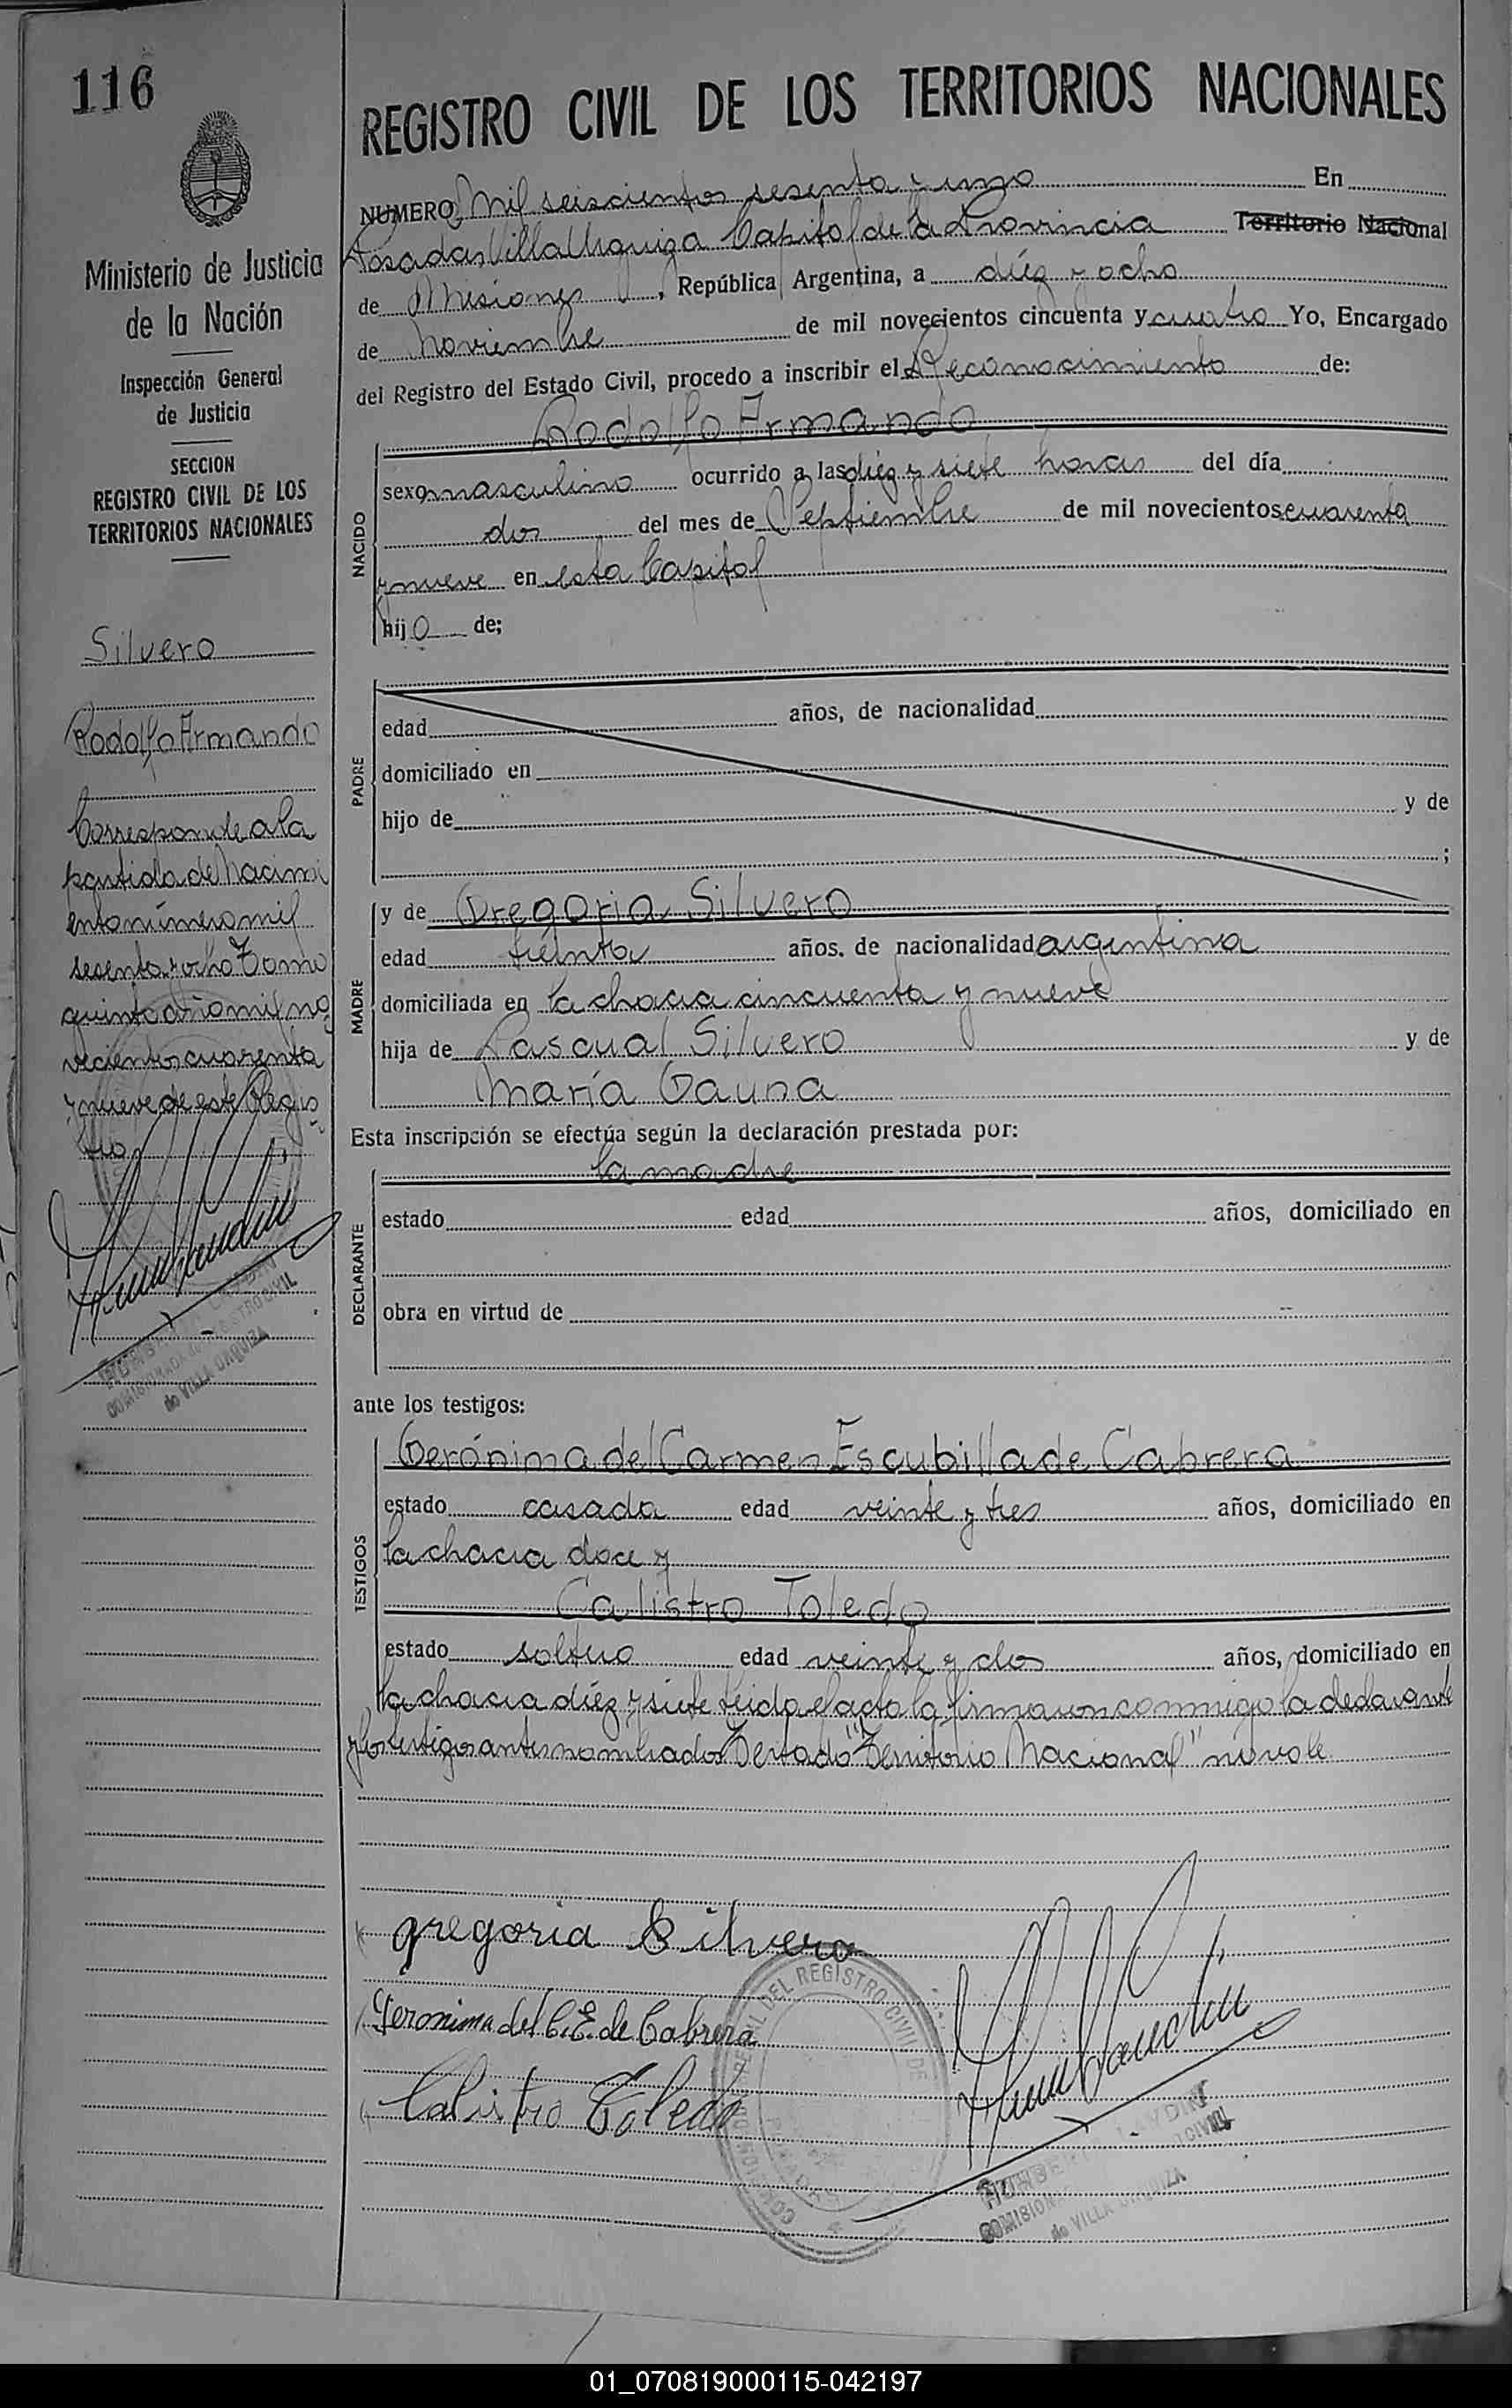 116
Ministerio de Justicia
de la Nación
Inspección General
de Justicia
SECCION
REGISTRO CIVIL DE LOS
TERRITORIOS NACIONALES
Silvero
Rodolfo Armando
Corresponde a la
partida de Nacimi
ento número mil
sesenta y ocho Tomo
quinto año mil no
vecientos cuarenta
y nueve de este Regis
tro
REGISTRO CIVIL DE LOS TERRITORIOS NACIONALES
NUMERO Mil seiscientos sesenta y uno En
Posadas Villa Urquiza Capital de la Provincia Territorio Nacional
de Misiones, República Argentina, a diéz y ocho
de Noviembre de mil novecientos cincuenta y cuatro Yo, Encargado
del Registro del Estado Civil, procedo a inscribir el Reconocimiento de:
Rodolfo Armando
NACIDO
sexo masculino ocurrido a las diéz y siete horas del día
dos del mes de Septiembre de mil novecientos cuarenta
y nueve en esta Capital
hijo de;
PADRE
edad años, de nacionalidad
domiciliado en
hijo de y de
;
MADRE
y de Gregoria Silvero
edad treinta años, de nacionalidad argentina
domiciliada en la chacra cincuenta y nueve
hija de Pascual Silvero y de
María Gauna
Esta inscripción se efectúa según la declaración prestada por:
la madre
DECLARANTE
estado edad años, domiciliado en
obra en virtud de
ante los testigos:
TESTIGOS
Gerónima del Carmen Escubilla de Cabrera
estado casada edad veinte y tres años, domiciliado en
la chacra doce y
Calistro Toledo
estado soltero edad veinte y dos años, domiciliado en
la chacra diéz y siete Leida el acta la firmaron conmigo la declarante
y los testigos antes nombrados Testado "Territorio Nacional" no vale
gregoria Silvero
Geronima del C. E. de Cabrera
Calistro Toledo
DEL REGISTRO CIVIL DE
de VILLA URQUIZA
01_070819000115-042197